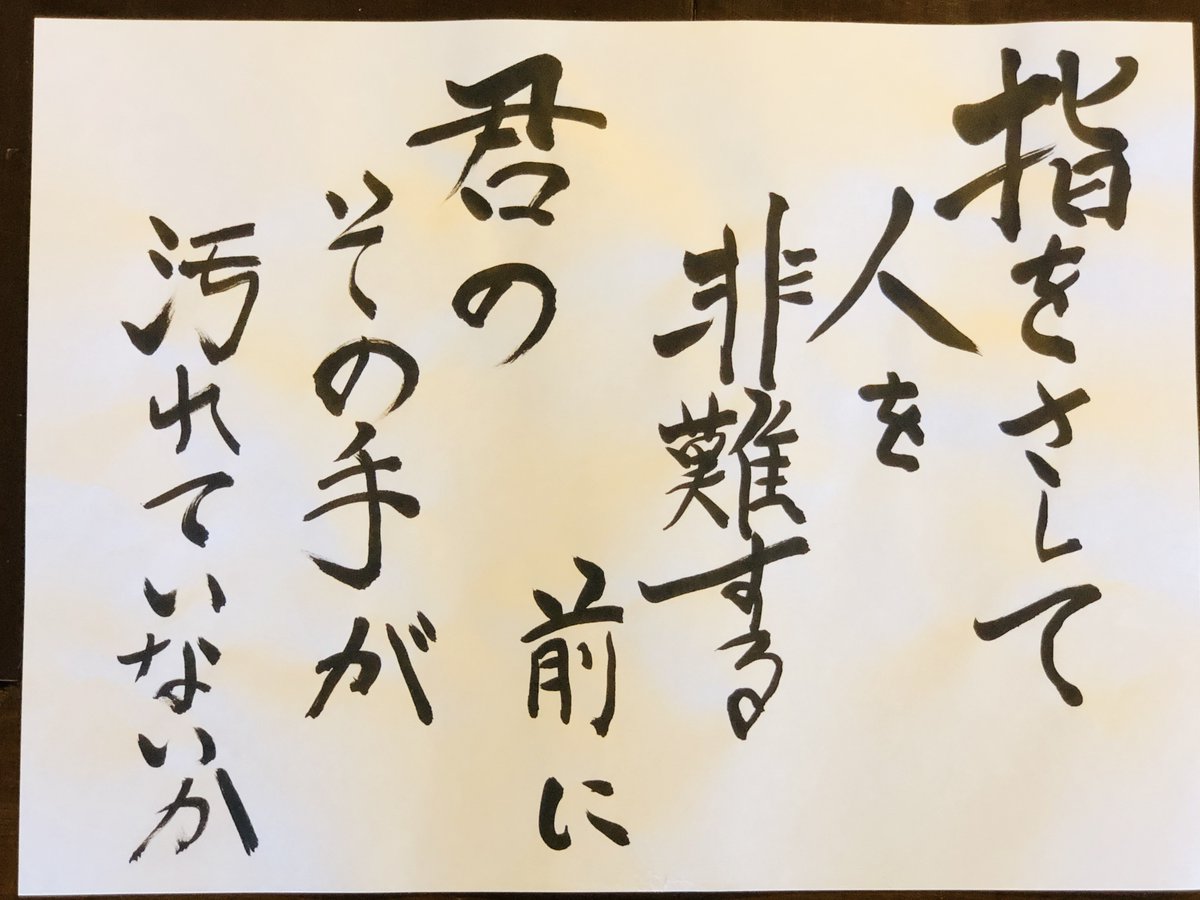 指をさして
人を
非難する
前に
君の
その手が
汚れていないか